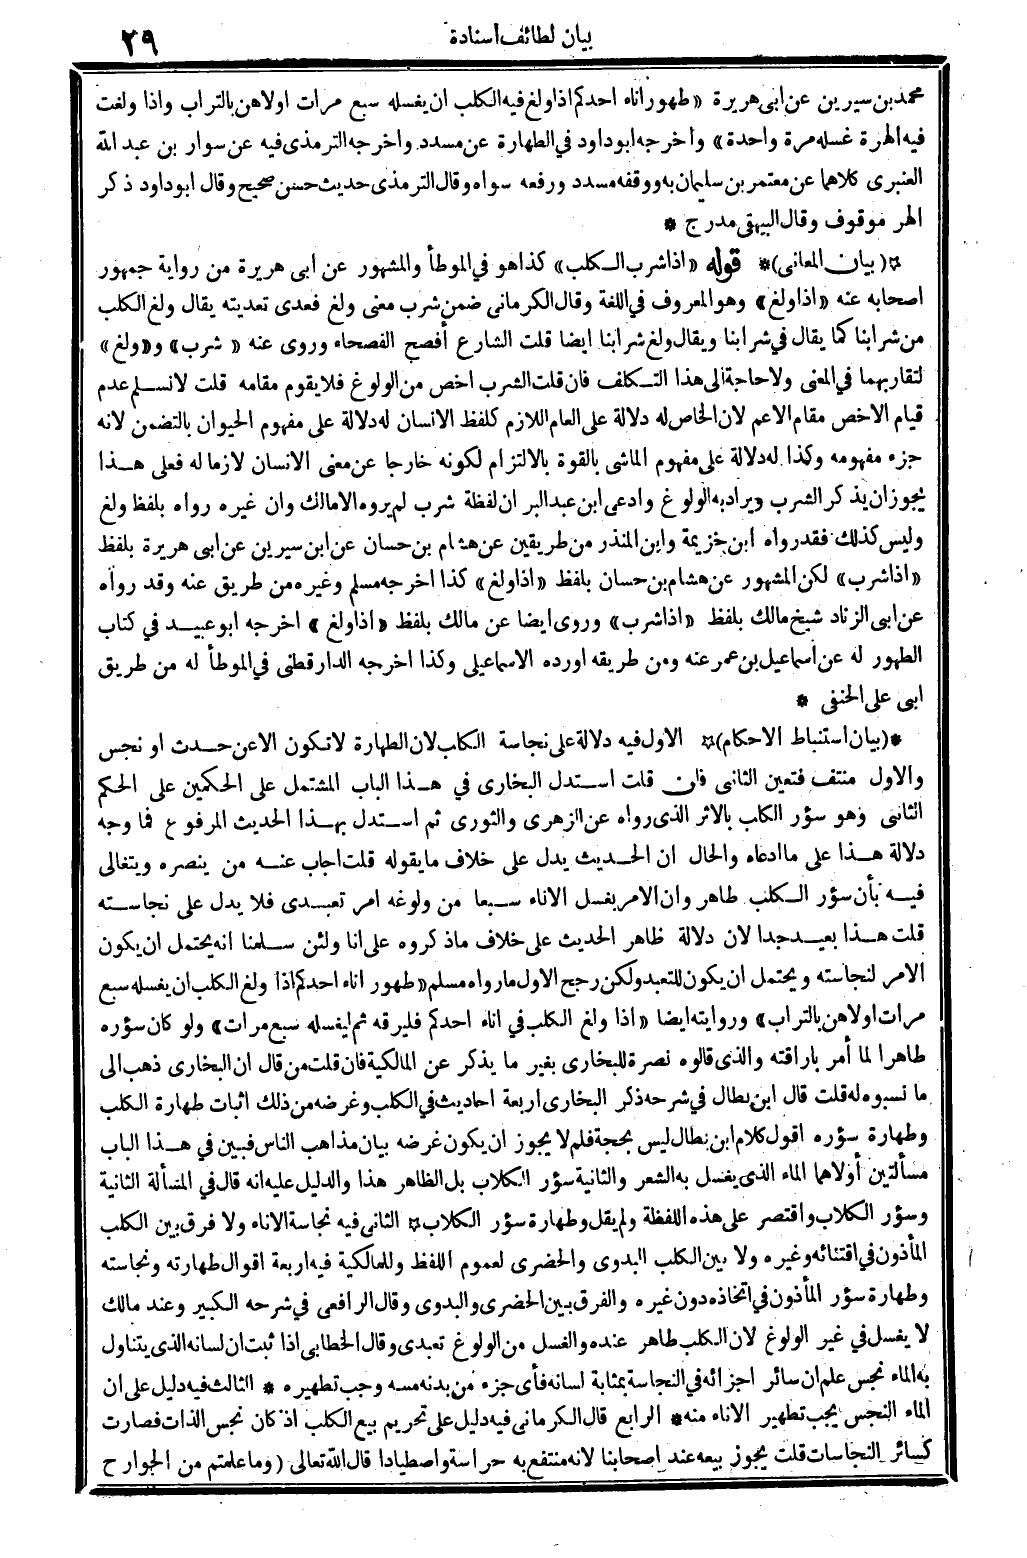 بيان لطائف أسنادة ٣٩
محمد بن سيرين عن ابى هريرة «طهور اناء احدكم اذا ولغ فيه الكلب ان يغسله سبع مرات اولاهن بالتراب واذا ولغت
فيه الهرة غسله مرة واحدة» وأخرجه ابو داود في الطهارة عن مسدد واخرجه الترمذى فيه عن سوار بن عبد الله
العنبرى كلاهما عن معتمر بن سليمان به ووقفه مسدد ورفعه سواه وقال الترمذى حديث حسن صحيح وقال ابو داود ذكر
الهر موقوف وقال البيهقى مدرج *
*(بيان المعانى)* قوله «اذا شرب الكلب» كذا هو في الموطأ والمشهور عن ابى هريرة من رواية جمهور
اصحابه عنه «اذا ولغ» وهو المعروف في اللغة وقال الكرمانى ضمن شرب معنى ولغ فعدى تعديته يقال ولغ الكلب
من شرابنا كما يقال في شرابنا ويقال ولغ شرابنا ايضا قلت الشارع أفصح الفصحاء وروى عنه «شرب» و«ولغ»
لتقاربهما في المعنى ولا حاجة الى هذا التكلف فان قلت الشرب اخص من الولوغ فلا يقوم مقامه قلت لا نسلم عدم
قيام الاخص مقام الاعم لان الخاص له دلالة على العام اللازم كلفظ الانسان له دلالة على مفهوم الحيوان بالتضمن لانه
جزء مفهومه وكذا له دلالة على مفهوم الماشى بالقوة بالالتزام لكونه خارجا عن معنى الانسان لازما له فعلى هذا
يجوز ان يذكر الشرب ويراد به الولوغ وادعى ابن عبد البر ان لفظة شرب لم يروه الا مالك وان غيره رواه بلفظ ولغ
وليس كذلك فقد رواه ابن خزيمة وابن المنذر من طريقين عن هشام بن حسان عن ابن سيرين عن ابى هريرة بلفظ
«اذا شرب» لكن المشهور عن هشام بن حسان بلفظ «اذا ولغ» كذا اخرجه مسلم وغيره من طريق عنه وقد رواه
عن ابى الزناد شيخ مالك بلفظ «اذا شرب» وروى ايضا عن مالك بلفظ «اذا ولغ» اخرجه ابو عبيد في كتاب
الطهور له عن أسماعيل بن عمر عنه ومن طريقه اورده الاسماعيلى وكذا اخرجه الدارقطنى في الموطأ له من طريق
ابى على الحنفى *
*(بيان استنباط الاحكام)* الاول فيه دلالة على نجاسة الكلب لان الطهارة لا تكون الا عن حدث او نجس
والاول منتف فتعين الثانى فان قلت استدل البخارى في هذا الباب المشتمل على الحكمين على الحكم
الثانى وهو سؤر الكلب بالاثر الذى رواه عن الزهرى والثورى ثم استدل بهذا الحديث المرفوع فما وجه
دلالة هذا على ما ادعاه والحال ان الحديث يدل على خلاف ما يقوله قلت اجاب عنه من ينصره ويتغالى
فيه بأن سؤر الكلب طاهر وان الامر بغسل الاناء سبعا من ولوغه امر تعبدى فلا يدل على نجاسته
قلت هذا بعيد جدا لان دلالة ظاهر الحديث على خلاف ما ذكروه على انا ولئن سلمنا انه يحتمل ان يكون
الامر لنجاسته ويحتمل ان يكون للتعبد ولكن رجح الاول ما رواه مسلم «طهور اناء احدكم اذا ولغ الكلب ان يغسله سبع
مرات اولاهن بالتراب» وروايته ايضا «اذا ولغ الكلب في اناء احدكم فليرقه ثم ليغسله سبع مرات» ولو كان سؤره
طاهرا لما أمر باراقته والذى قالوه نصرة للبخارى بغير ما يذكر عن المالكية فان قلت من قال ان البخارى ذهب الى
ما نسبوه له قلت قال ابن بطال في شرحه ذكر البخارى اربعة احاديث في الكلب وغرضه من ذلك اثبات طهارة الكلب
وطهارة سؤره اقول كلام ابن بطال ليس بحجة فلم لا يجوز ان يكون غرضه بيان مذاهب الناس فبين في هذا الباب
مسألتين أولاهما الماء الذى يغسل به الشعر والثانية سؤر الكلاب بل الظاهر هذا والدليل عليه انه قال في المسألة الثانية
وسؤر الكلاب واقتصر على هذه اللفظة ولم يقل وطهارة سؤر الكلاب * الثانى فيه نجاسة الاناء ولا فرق بين الكلب
المأذون في اقتنائه وغيره ولا بين الكلب البدوى والحضرى لعموم اللفظ وللمالكية فيه اربعة اقوال طهارته ونجاسته
وطهارة سؤر المأذون في اتخاذه دون غيره والفرق بين الحضرى والبدوى وقال الرافعى في شرحه الكبير وعند مالك
لا يغسل في غير الولوغ لان الكلب طاهر عنده والغسل من الولوغ تعبدى وقال الخطابى اذا ثبت ان لسانه الذى يتناول
به الماء نجس علم ان سائر اجزائه في النجاسة بمثابة لسانه فأى جزء من بدنه مسه وجب تطهيره * الثالث فيه دليل على ان
الماء النجس يجب تطهير الاناء منه * الرابع قال الكرمانى فيه دليل على تحريم بيع الكلب اذ كان نجس الذات فصارت
كسائر النجاسات قلت يجوز بيعه عند اصحابنا لانه منتفع به حراسة واصطيادا قال الله تعالى (وما علمتم من الجوارح